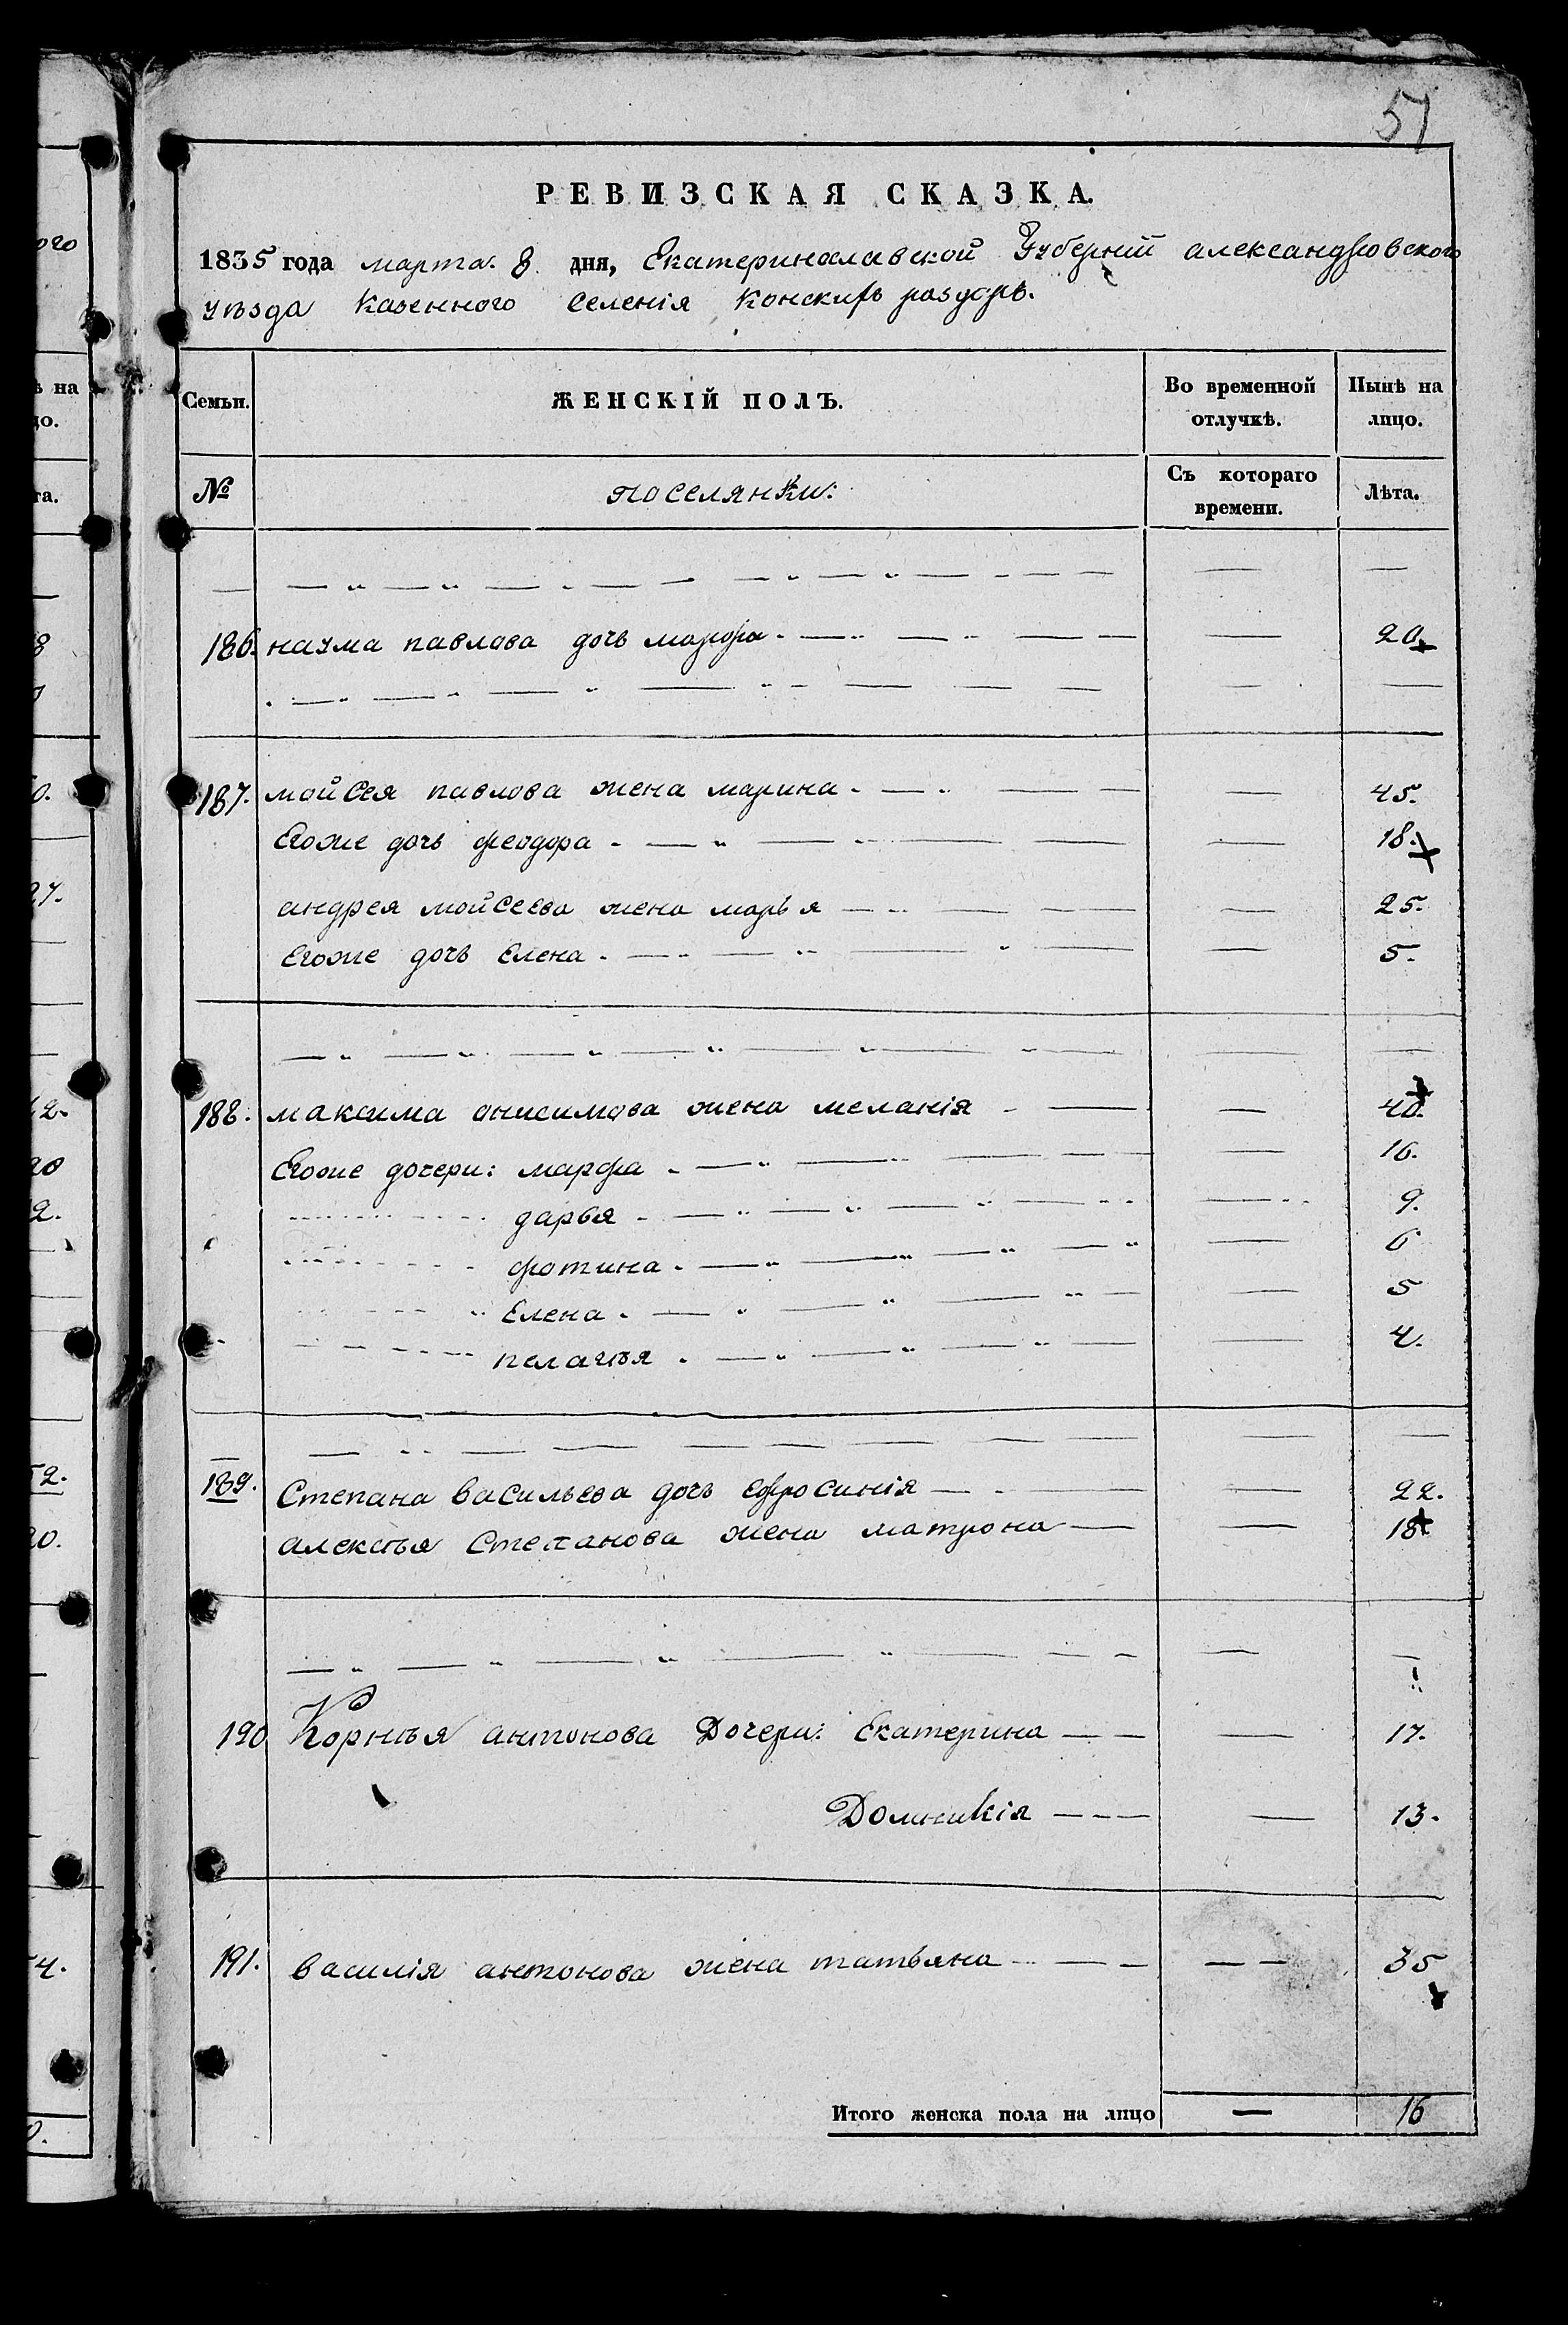 57
РЕВИЗСКАЯ СКАЗКА.
1835 года марта 8 дня, Екатеринославской Губерніи александровского
уѣзда Казенного Селенія Конскихъ раздоръ.
Семьи. ЖЕНСКІЙ ПОЛЪ. Во временной отлучкѣ. Нынѣ на лицо.
№ поселянки: Съ котораго времени. Лѣта.
186. наума павлова дочь марфа 20
187. мойсея павлова жена марина 45.
Егоже дочь феодора 18.
андрея мойсеева жена марья 25.
Егоже дочь Елена 5.
188. максима анисимова жена меланія 40.
Егоже дочери: марфа 16.
дарья 9.
фотина 6
Елена 5
пелагѣя 4.
189. Степана васильева дочь ефросинія 22.
алексѣя Степанова жена матрона 18
190 Корнѣя антонова Дочери: Екатерина 17.
Домникія 13.
191. василія антонова жена татьяна 35
Итого женска пола на лицо — 16